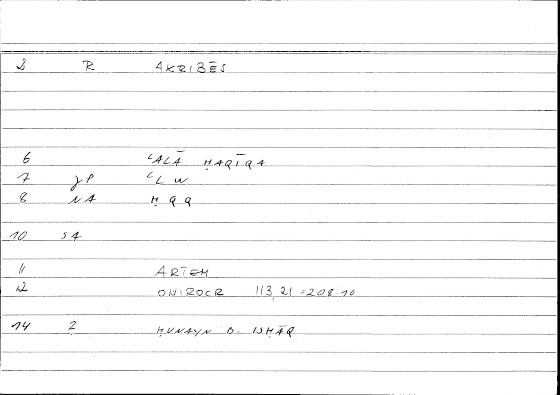 2 R AKRIBĒS
6 ʿALĀ ḤAQĪQA
7 JP ʿL W
8 NA Ḥ Q Q
10 SA
11 ARTEM
12 ONIROCR 113,21 = 208.10
14 2 ḤUNAYN B. ISḤĀQ